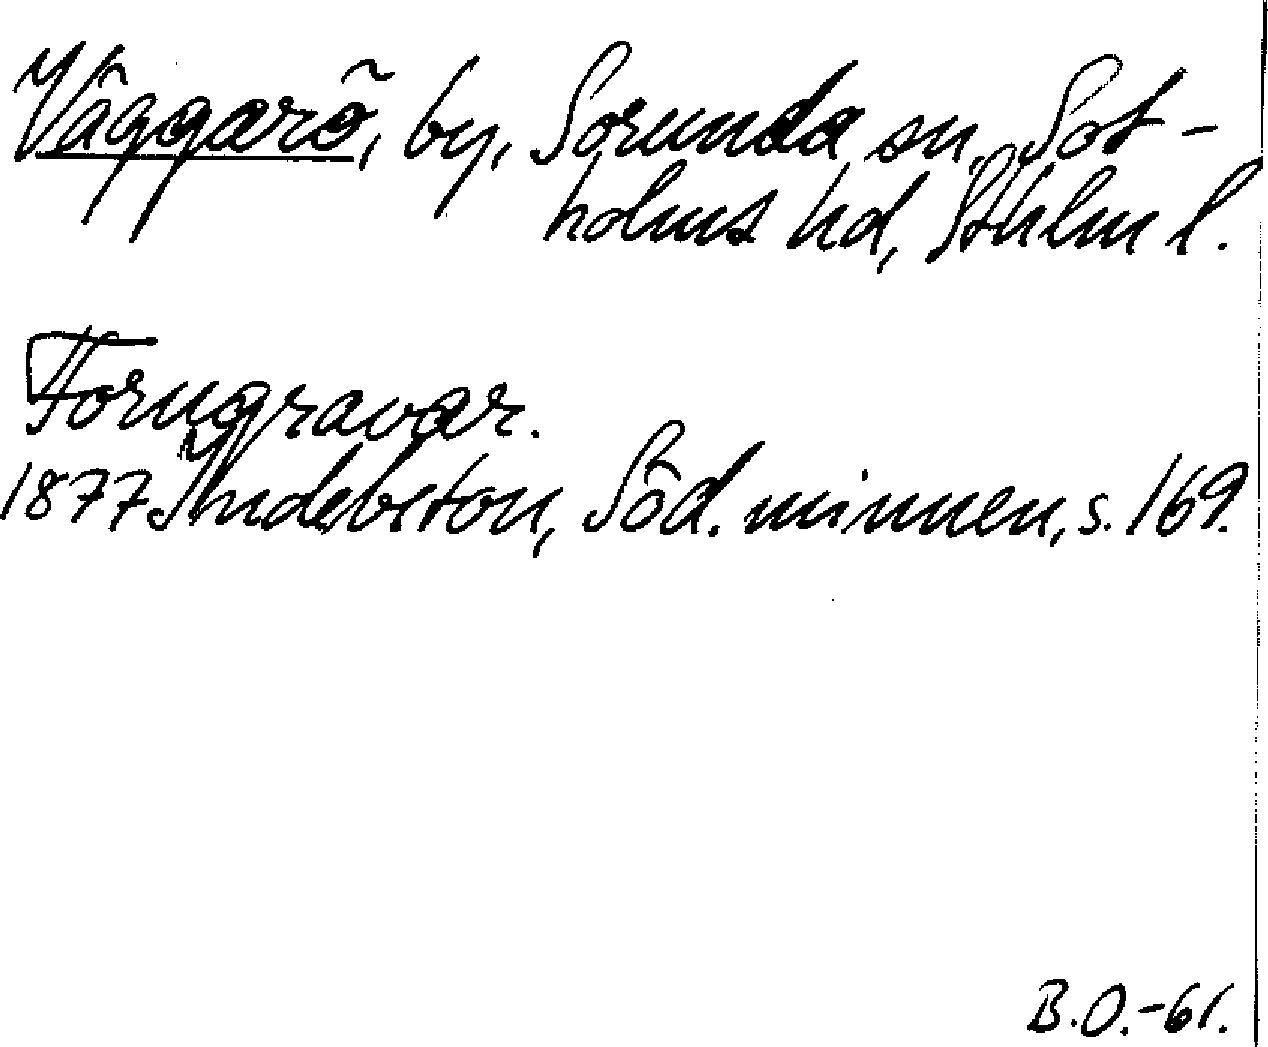 Väggarö, by, Sorunda sn, Sot-
holms hd, Sthlm l.
Forngravar.
1877 Indebetou, Söd. minnen, s. 169.
B.O.-61.